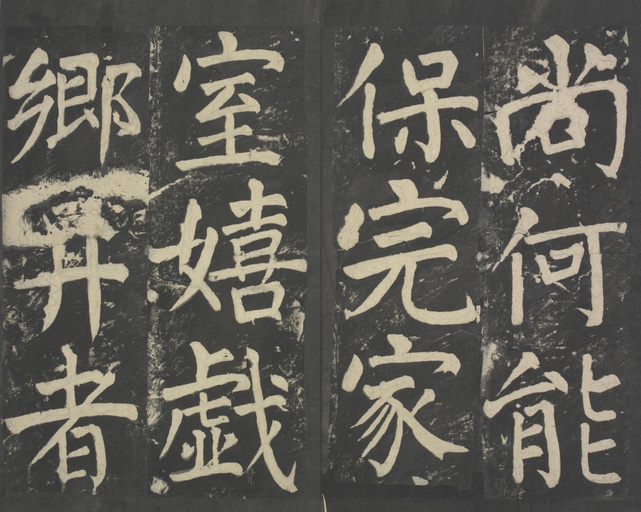 尚何能
保完家
室嬉戯
鄉井者